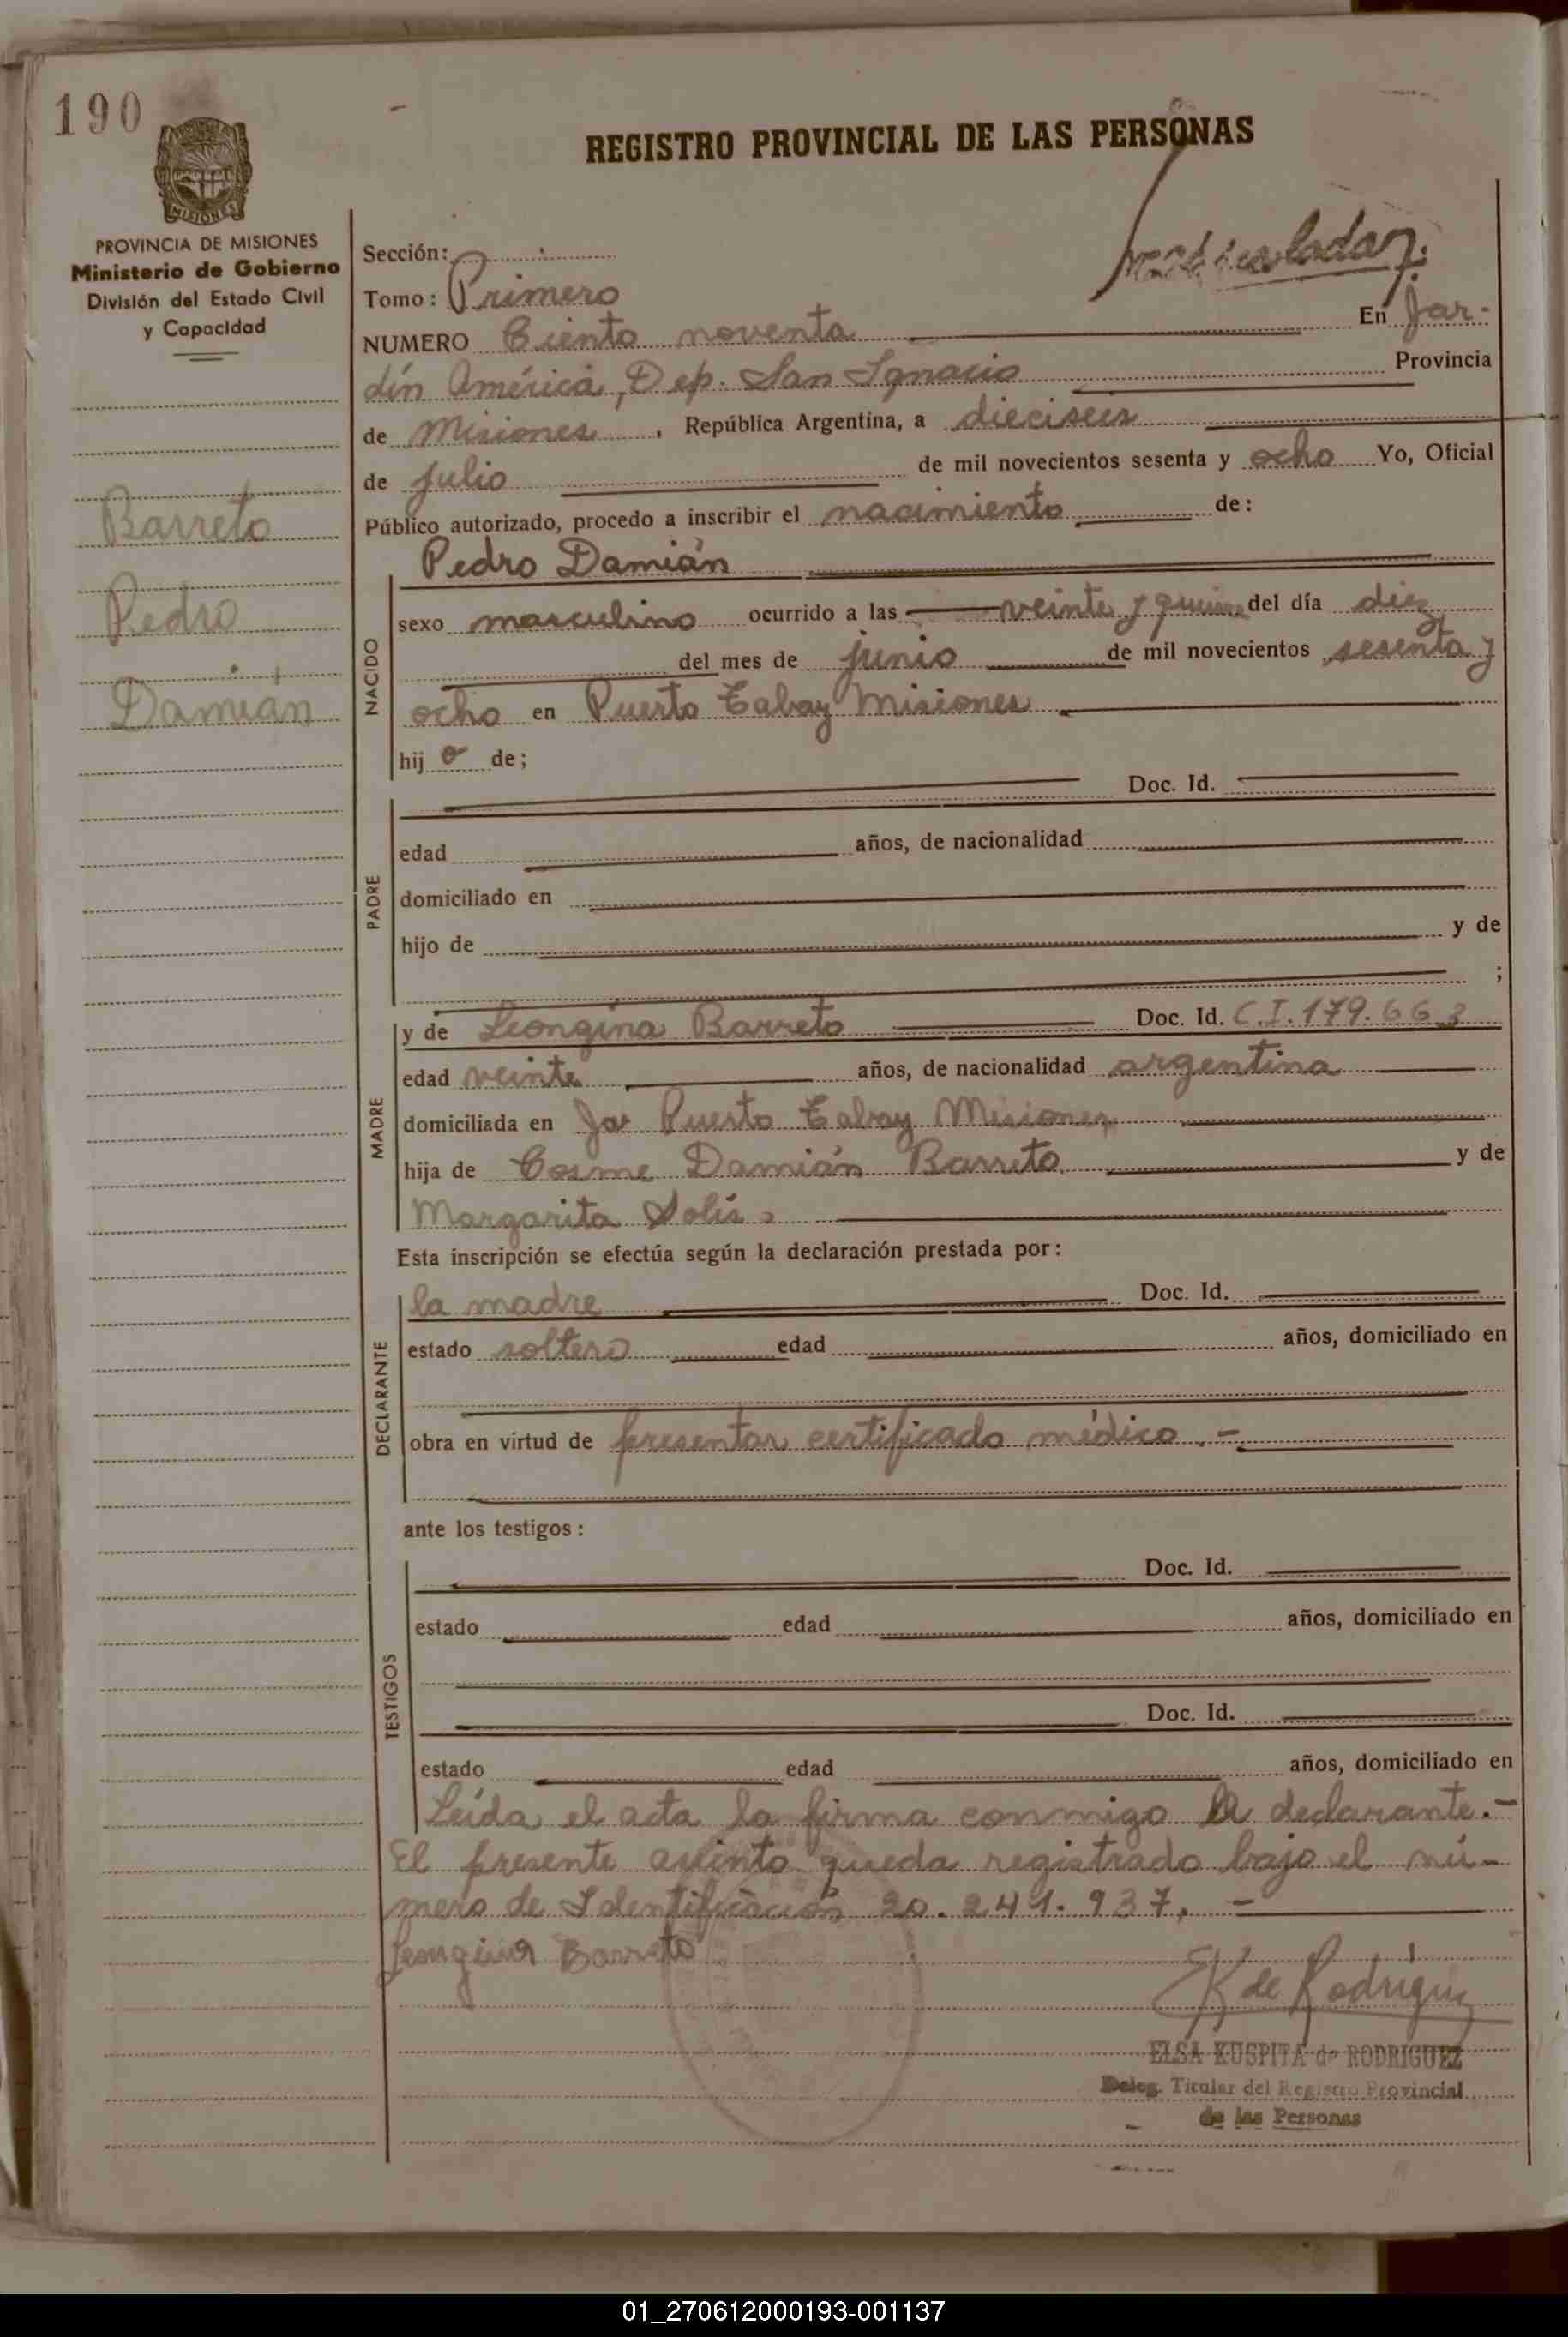 190
REGISTRO PROVINCIAL DE LAS PERSONAS
MISIONES
PROVINCIA DE MISIONES
Ministerio de Gobierno
División del Estado Civil
y Capacidad
Barreto
Pedro
Damián
Sección:
Tomo: Primero
NUMERO Ciento noventa En Jar-
dín América, Dep. San Ignacio Provincia
de Misiones, República Argentina, a dieciseis
de julio de mil novecientos sesenta y ocho Yo, Oficial
Público autorizado, procedo a inscribir el nacimiento de:
Pedro Damián
NACIDO
sexo masculino ocurrido a las veinte y quince del día diez
del mes de junio de mil novecientos sesenta y
ocho en Puerto Tabay Misiones
hijo de;
Doc. Id.
PADRE
edad años, de nacionalidad
domiciliado en
hijo de y de
;
MADRE
y de Leongina Barreto Doc. Id. C.I. 179.663
edad veinte años, de nacionalidad argentina
domiciliada en Jar Puerto Tabay Misiones
hija de Cosme Damián Barreto y de
Margarita Solis
Esta inscripción se efectúa según la declaración prestada por:
DECLARANTE
la madre Doc. Id.
estado soltero edad años, domiciliado en
obra en virtud de presentar certificado médico.-
ante los testigos:
TESTIGOS
Doc. Id.
estado edad años, domiciliado en
Doc. Id.
estado edad años, domiciliado en
Leída el acta la firma conmigo la declarante.-
El presente asiento queda registrado bajo el nú-
mero de Identificación 20.241.937.-
Leongina Barreto
K de Rodríguez
ELSA KUSPITA de RODRIGUEZ
Deleg. Titular del Registro Provincial
de las Personas
01_270612000193-001137